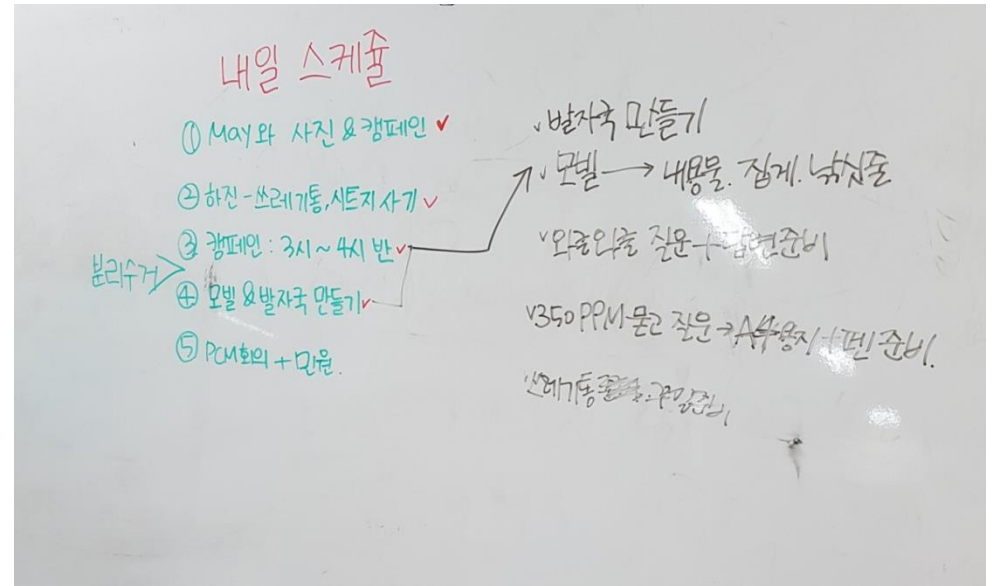 내일 스케쥴
① May와 사진 & 캠페인 ✓
② 하진 - 쓰레기통, 시트지 사기 ✓
③ 캠페인 : 3시 ~ 4시 반 ✓
분리수거 >
④ 모빌 & 발자국 만들기 ✓
⑤ PCM회의 + 민원.
✓ 발자국 만들기
✓ 모빌 → 내용물. 집게. 낚싯줄
✓ 질문 + 답변준비
✓ 350 PPM 묻고 질문 → A4용지 + 펜 준비.
쓰레기통